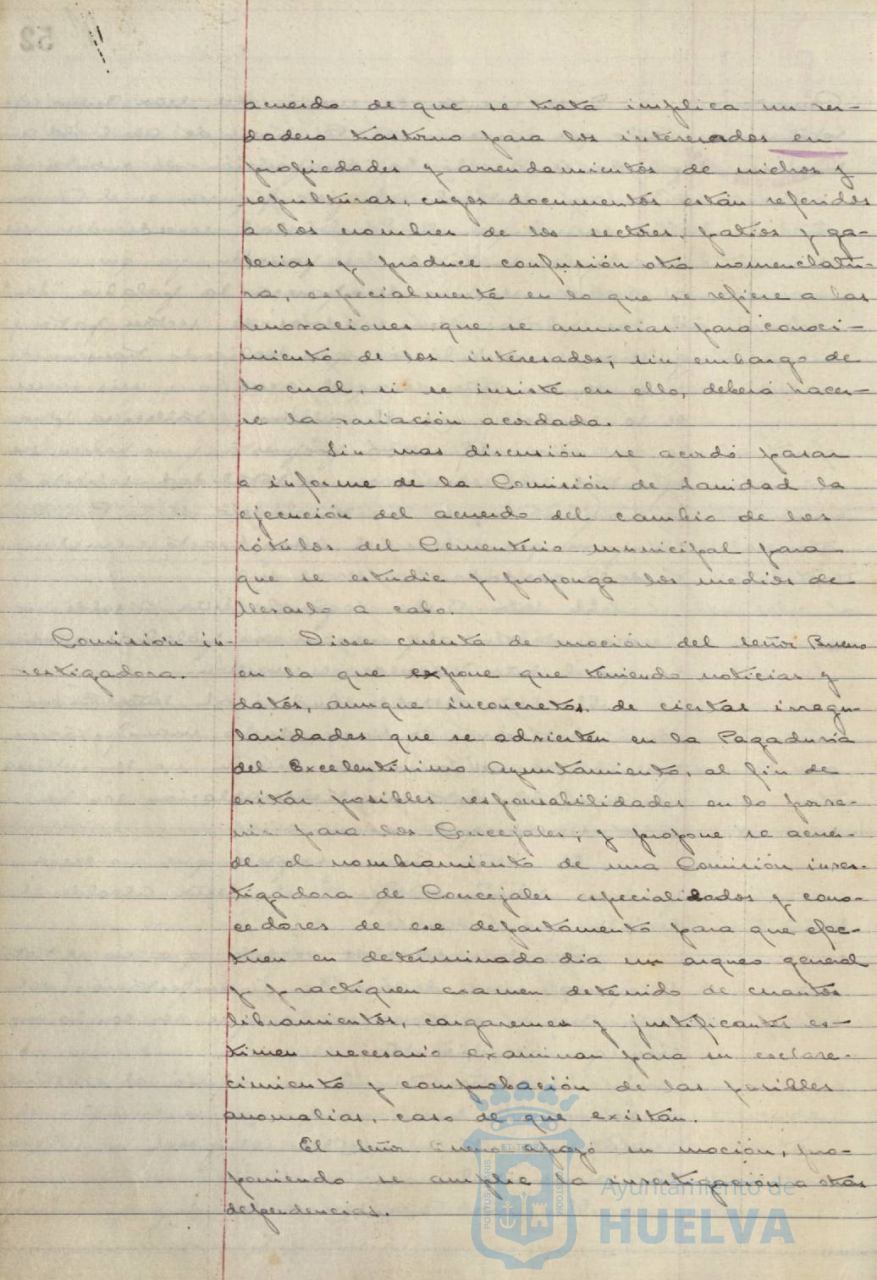 52
acuerdo de que se trata implica un ver-
dadero trastorno para los interesados en
propiedades y arrendamientos de nichos y
sepulturas, cuyos documentos están referidos
a los nombres de los sectores, patios y ga-
lerias y produce confusión otra nomenclatu-
ra, especialmente en lo que se refiere a las
renovaciones que se anuncias para conoci-
miento de los interesados; sin embargo de
lo cual, si se insiste en ello, deberá hacer-
se la variación acordada.
Sin mas discusión se acordó pasar
a informe de la Comisión de Sanidad la
ejecución del acuerdo del cambio de los
rótulos del Cementerio municipal para
que se estudie y proponga los medios de
llevarlo a cabo.
Comisión in-
vestigadora.
Diose cuenta de moción del Señor Bueno
en la que expone que teniendo noticias y
datos, aunque inconcretos, de ciertas irregu-
laridades que se advierten en la Pagaduria
del Excelentísimo Ayuntamiento, al fin de
evitar posibles responsabilidades en lo porve-
nir para los Concejales; y propone se acuer-
de el nombramiento de una Comisión inves-
tigadora de Concejales especializados y cono-
cedores de ese departamento para que efec-
tuen en determinado dia un arqueo general
y practiquen examen detenido de cuantos
libramientos, cargaremes y justificantes es-
timen necesario examinar para su esclare-
cimiento y comprobación de las posibles
anomalías, caso de que existan.
El Señor Bueno apoyó su moción, pro-
poniendo se amplie la investigación a otras
dependencias.
Ayuntamiento de
HUELVA